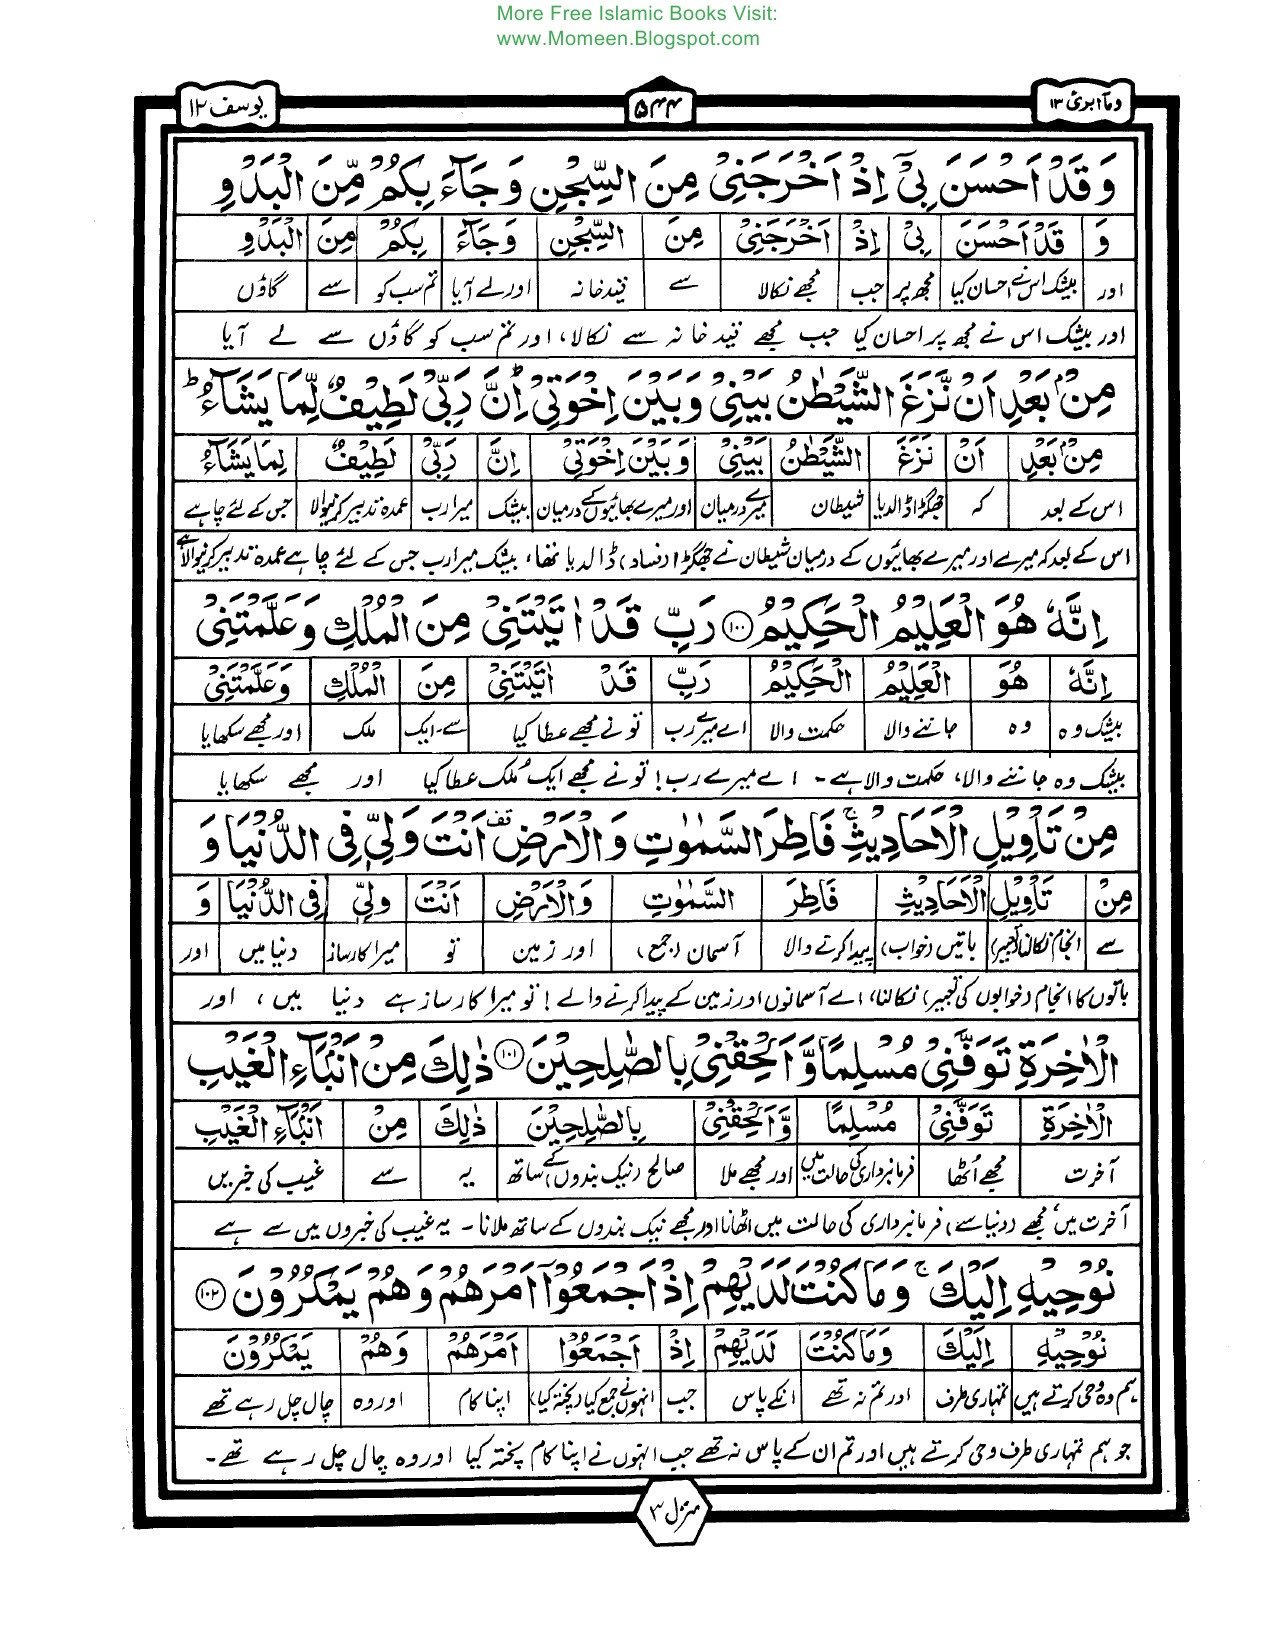 More Free Islamic Books Visit:
www.Momeen.Blogspot.com
وما ابرئ ۱۳
۵۴۴
یوسف ۱۲
وَقَدْ اَحْسَنَ بِیْٓ اِذْ اَخْرَجَنِیْ مِنَ السِّجْنِ وَجَآءَ بِكُمْ مِّنَ الْبَدْوِ
وَ قَدْ اَحْسَنَ بِیْ اِذْ اَخْرَجَنِیْ مِنَ السِّجْنِ وَجَآءَ بِكُمْ مِنَ الْبَدْوِ
اور بیشک اس نے احسان کیا مجھ پر جب مجھے نکالا سے قید خانہ اور لے آیا تم سب کو سے گاؤں
اور بیشک اس نے مجھ پر احسان کیا جب مجھے قید خانہ سے نکالا، اور تم سب کو گاؤں سے لے آیا
مِنْۢ بَعْدِ اَنْ نَّزَغَ الشَّیْطٰنُ بَیْنِیْ وَبَیْنَ اِخْوَتِیْ ؕ اِنَّ رَبِّیْ لَطِیْفٌ لِّمَا یَشَآءُ ؕ
مِنْۢ بَعْدِ اَنْ نَزَغَ الشَّیْطٰنُ بَیْنِیْ وَبَیْنَ اِخْوَتِیْ اِنَّ رَبِّیْ لَطِیْفٌ لِمَا یَشَآءُ
اس کے بعد کہ جھگڑا ڈالدیا شیطان میرے درمیان اور میرے بھائیوں کے درمیان بیشک میرا رب عمدہ تدبیر کرنیوالا جس کے لئے چاہے
اس کے بعد کہ میرے اور میرے بھائیوں کے درمیان شیطان نے جھگڑا (فساد) ڈالدیا تھا، بیشک میرا رب جس کے لئے چاہے عمدہ تدبیر کرنیوالا ہے
اِنَّهٗ هُوَ الْعَلِیْمُ الْحَكِیْمُ ۱۰۰ رَبِّ قَدْ اٰتَیْتَنِیْ مِنَ الْمُلْكِ وَعَلَّمْتَنِیْ
اِنَّهٗ هُوَ الْعَلِیْمُ الْحَكِیْمُ رَبِّ قَدْ اٰتَیْتَنِیْ مِنَ الْمُلْكِ وَعَلَّمْتَنِیْ
بیشک وہ وہ جاننے والا حکمت والا اے میرے رب تو نے مجھے عطا کیا سے۔ایک ملک اور مجھے سکھایا
بیشک وہ جاننے والا، حکمت والا ہے۔ اے میرے رب! تو نے مجھے ایک مُلک عطا کیا اور مجھے سکھایا
مِنْ تَاْوِیْلِ الْاَحَادِیْثِ ۚ فَاطِرَ السَّمٰوٰتِ وَالْاَرْضِ قف اَنْتَ وَلِیّٖ فِی الدُّنْیَا وَ
مِنْ تَاْوِیْلِ الْاَحَادِیْثِ فَاطِرَ السَّمٰوٰتِ وَالْاَرْضِ اَنْتَ وَلِیّٖ فِی الدُّنْیَا وَ
سے انجام نکالنا (تعبیر) باتیں (خواب) پیدا کرنے والا آسمان (جمع) اور زمین تو میرا کارساز دنیا میں اور
باتوں کا انجام (خوابوں کی تعبیر) نکالنا، اے آسمانوں اور زمین کے پیدا کرنے والے! تو میرا کارساز ہے دنیا میں، اور
الْاٰخِرَةِ تَوَفَّنِیْ مُسْلِمًا وَّاَلْحِقْنِیْ بِالصّٰلِحِیْنَ ۱۰۱ ذٰلِكَ مِنْ اَنْۢبَآءِ الْغَیْبِ
الْاٰخِرَةِ تَوَفَّنِیْ مُسْلِمًا وَّاَلْحِقْنِیْ بِالصّٰلِحِیْنَ ذٰلِكَ مِنْ اَنْۢبَآءِ الْغَیْبِ
آخرت مجھے اُٹھا فرمانبرداری کی حالت میں اور مجھے ملا صالح (نیک بندوں) کے ساتھ یہ سے غیب کی خبریں
آخرت میں، مجھے (دنیا سے) فرمانبرداری کی حالت میں اٹھانا اور مجھے نیک بندوں کے ساتھ ملانا۔ یہ غیب کی خبروں میں سے ہے
نُوْحِیْهِ اِلَیْكَ ۚ وَمَا كُنْتَ لَدَیْهِمْ اِذْ اَجْمَعُوْۤا اَمْرَهُمْ وَهُمْ یَمْكُرُوْنَ ۱۰۲
نُوْحِیْهِ اِلَیْكَ وَمَا كُنْتَ لَدَیْهِمْ اِذْ اَجْمَعُوْٓا اَمْرَهُمْ وَهُمْ یَمْكُرُوْنَ
ہم وہ وحی کرتے ہیں تمہاری طرف اور تم نہ تھے انکے پاس جب انہوں نے جمع کیا (پختہ کیا) اپنا کام اور وہ چال چل رہے تھے
جو ہم تمہاری طرف وحی کرتے ہیں اور تم ان کے پاس نہ تھے جب انہوں نے اپنا کام پختہ کیا اور وہ چال چل رہے تھے۔
منزل ۳